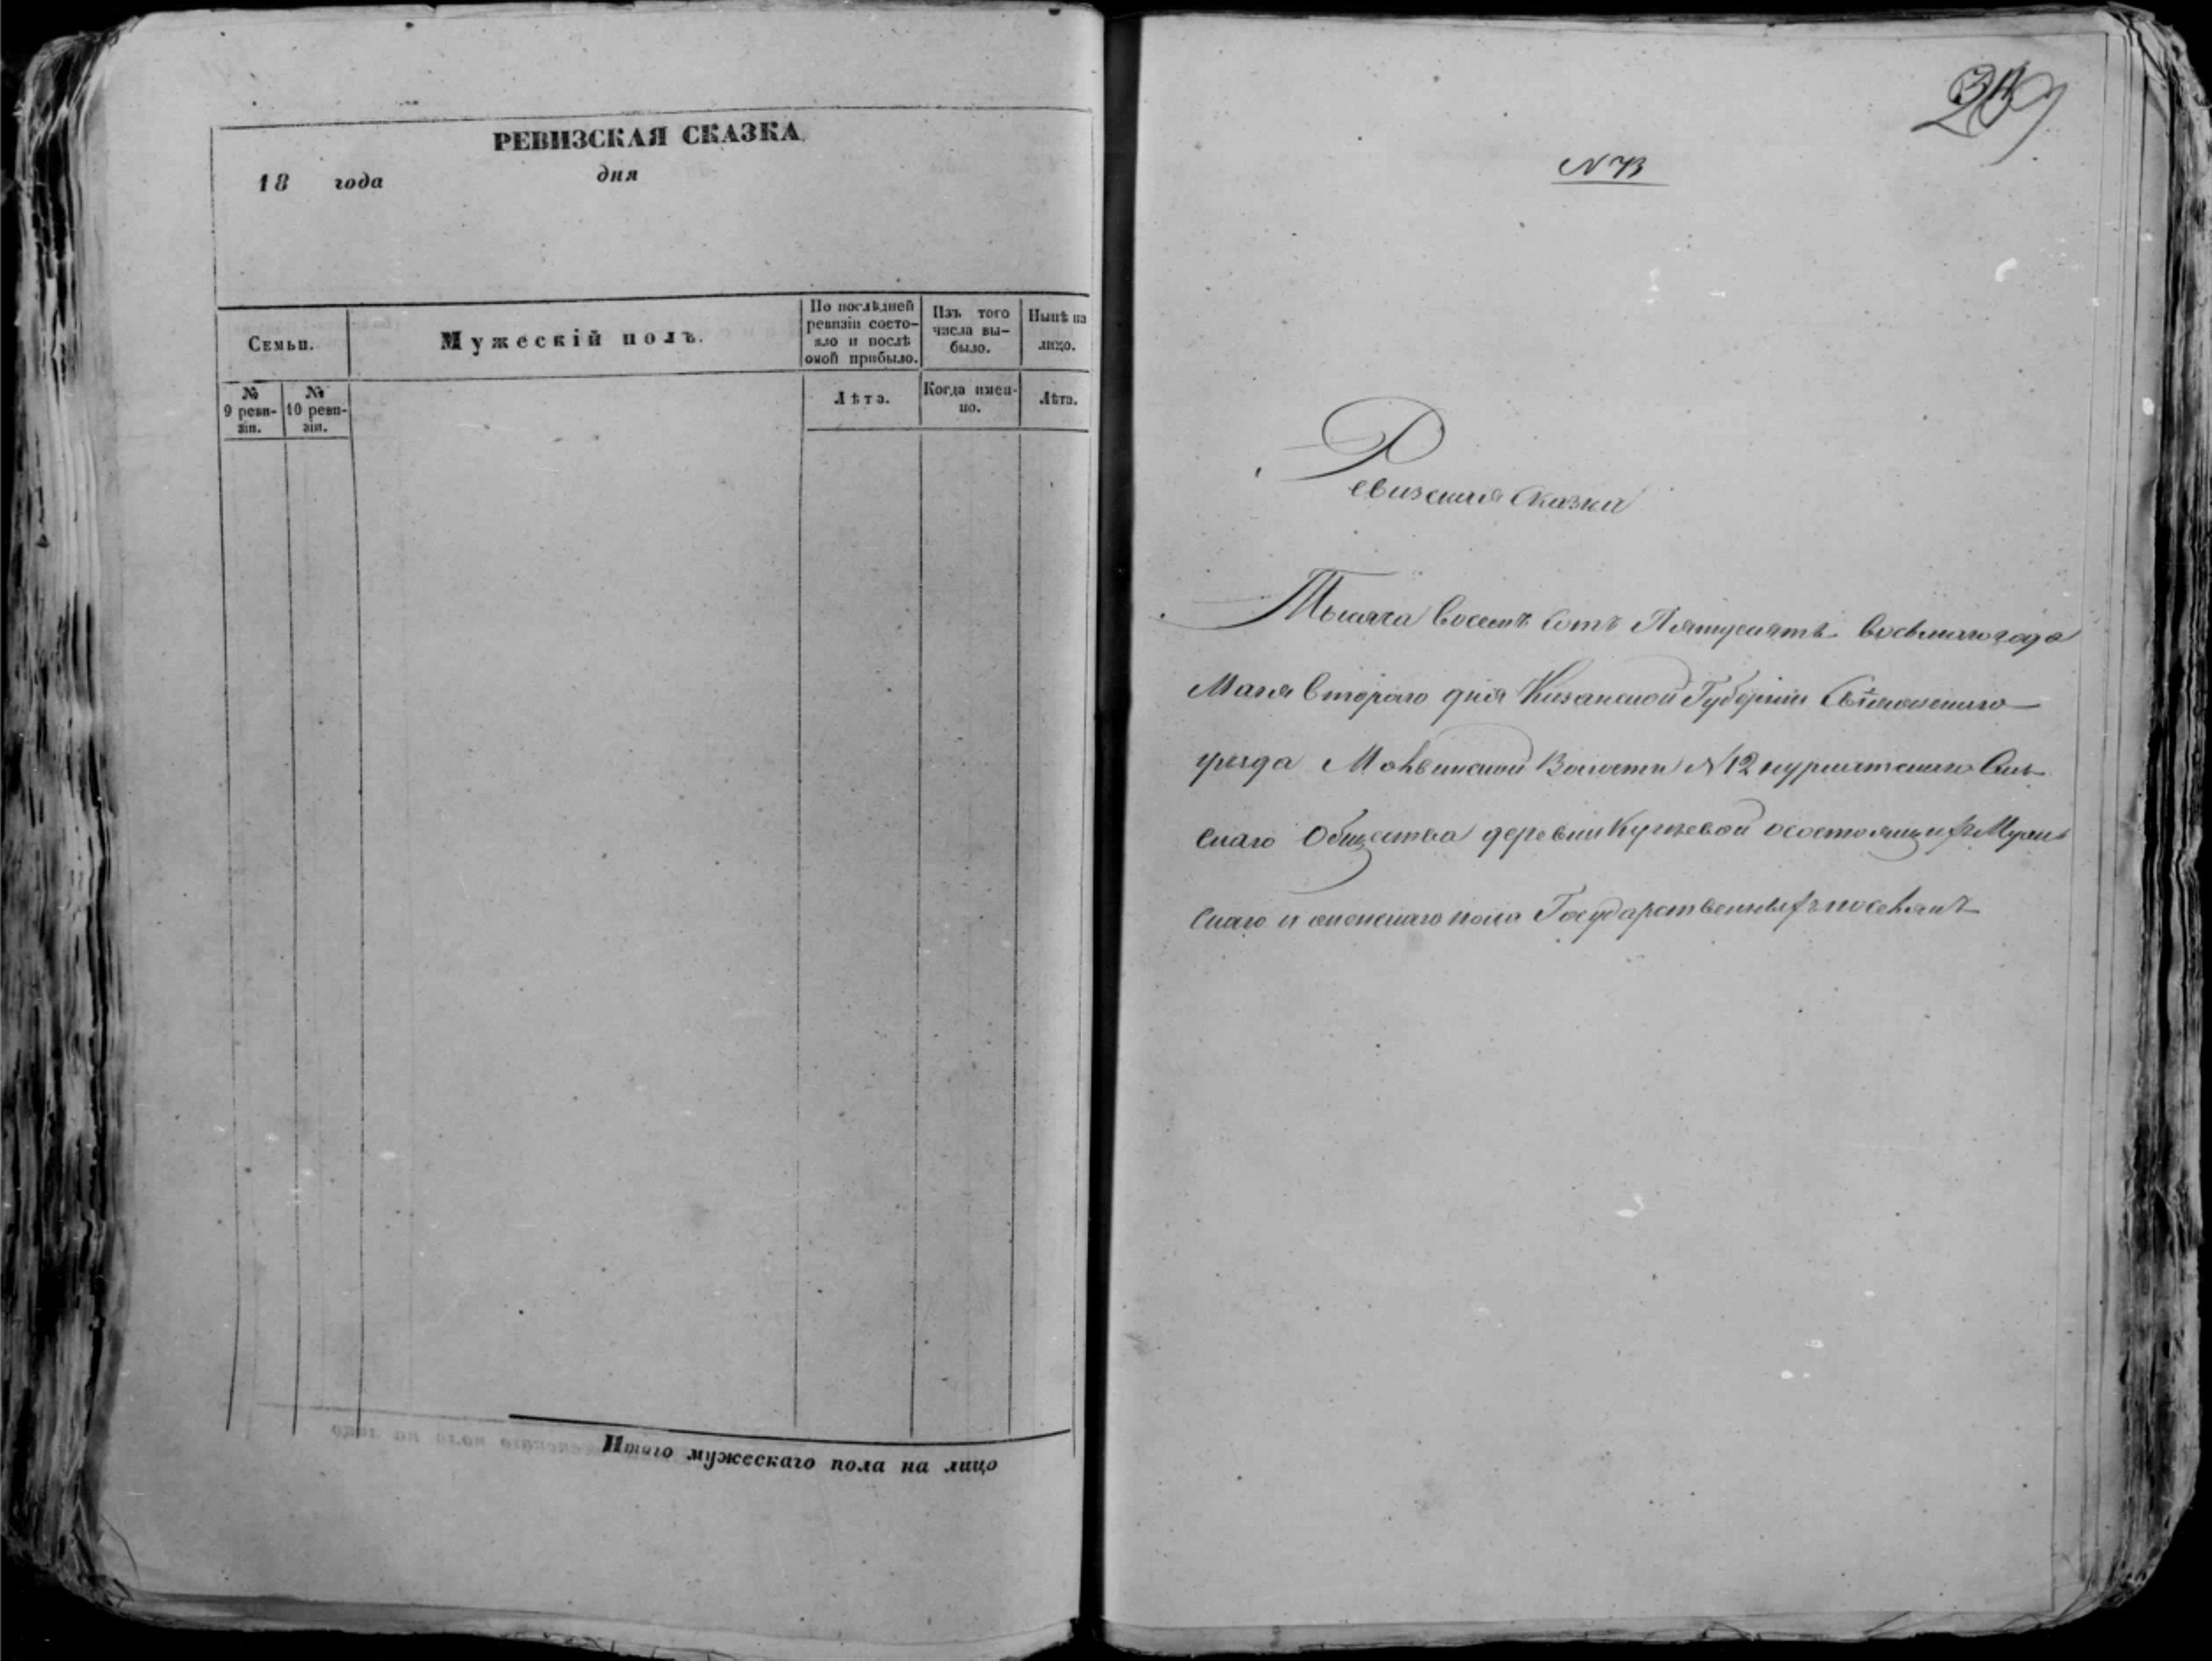 РЕВИЗСКАЯ СКАЗКА
18 года дня
Семьи.
Мужескій полъ.
По послѣдней ревизіи состояло и послѣ оной прибыло.
Изъ того числа выбыло.
Нынѣ на лицо.
№ 9 ревизіи.
№ 10 ревизіи.
Лѣта.
Когда именно.
Лѣта.
Итого мужескаго пола на лицо
Ревизская Сказка
Тысяча восемь сотъ Пятьдесятъ восьмаго года
Маия второго дня Казанской Губерніи Свіяжскаго
уѣзда Волости N 12 нурлатскаго Сель
скаго Общества деревни о состоящихъ Мужс
скаго и женскаго пола Государственныхъ поселянъ